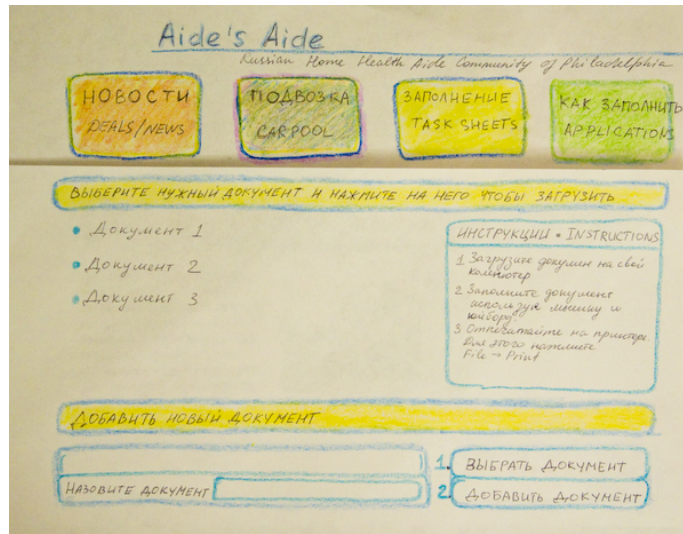 Aide's Aide
Russian Home Health Aide Community of Philadelphia
НОВОСТИ
DEALS/NEWS
ПОДВОЗКА
CARPOOL
ЗАПОЛНЕНИЕ
TASK SHEETS
КАК ЗАПОЛНИТЬ
APPLICATIONS
ВЫБЕРИТЕ НУЖНЫЙ ДОКУМЕНТ И НАЖМИТЕ НА НЕГО ЧТОБЫ ЗАГРУЗИТЬ
• Документ 1
• Документ 2
• Документ 3
ИНСТРУКЦИИ • INSTRUCTIONS
1 Загрузите на свой
компютер
2 Заполните документ
используя мышку и
кийборд.
3 Отпечатайте на принтере.
Для этого нажмите
File → Print
ДОБАВИТЬ НОВЫЙ ДОКУМЕНТ
1. ВЫБРАТЬ ДОКУМЕНТ
НАЗОВИТЕ ДОКУМЕНТ
2. ДОБАВИТЬ ДОКУМЕНТ